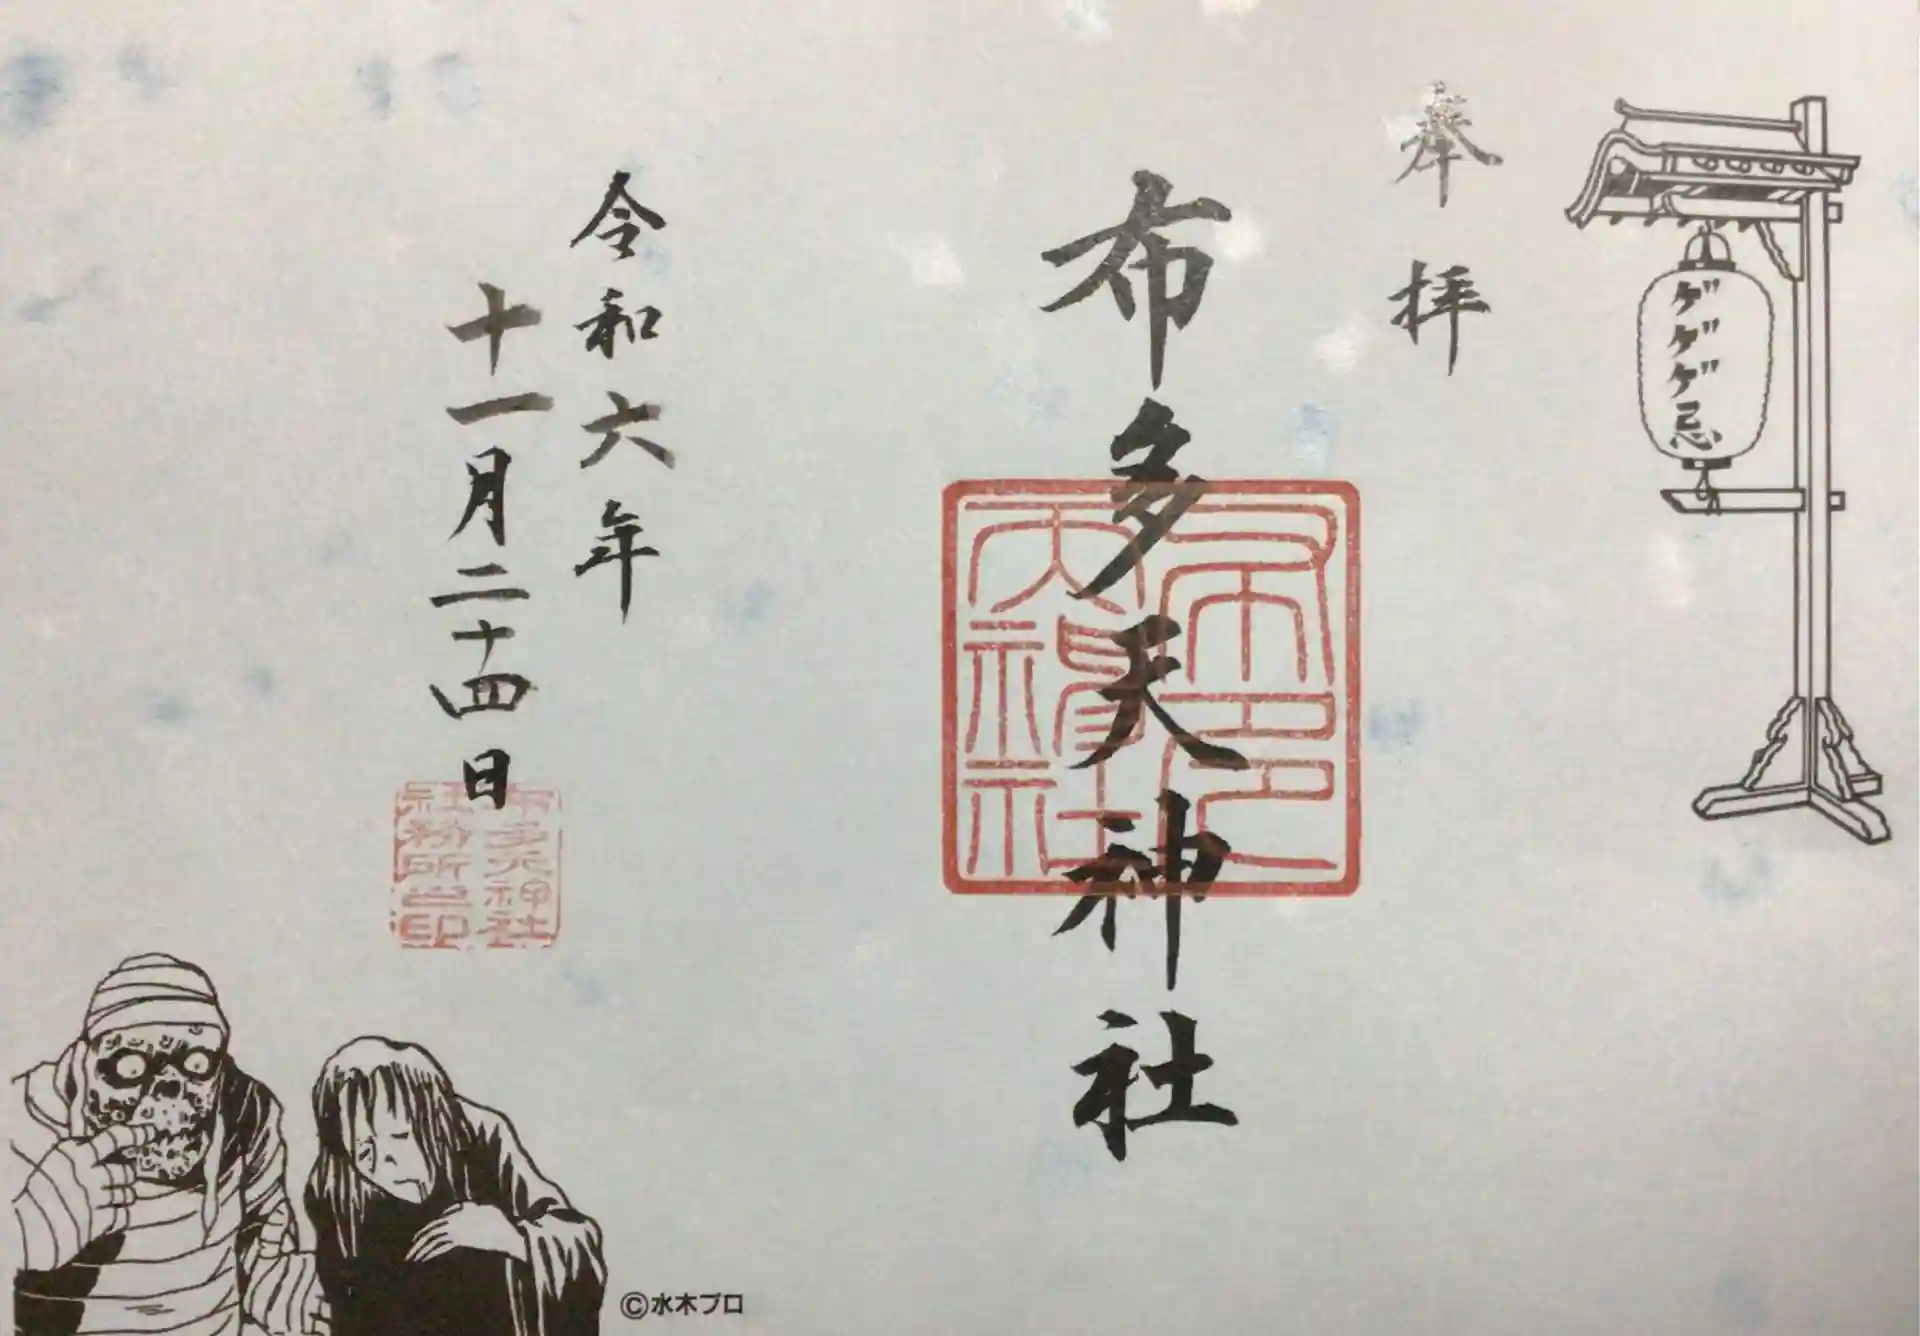 ゲゲゲ忌
奉拝
布多天神社
布多天神社
令和六年
十一月二十四日
布多天神
社社務所之印
©水木プロ